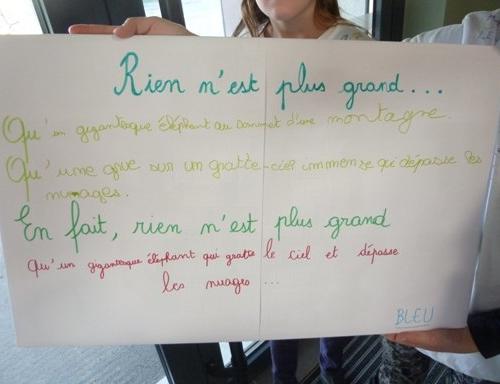 Rien n'est plus grand...
Qu'un gigantesque éléphant au sommet d'une montagne.
Qu'une grue sur un gratte-ciel immense qui dépasse les
nuages.
En fait, rien n'est plus grand
Qu'un gigantesque éléphant qui gratte le ciel et dépasse
les nuages ...
BLEU